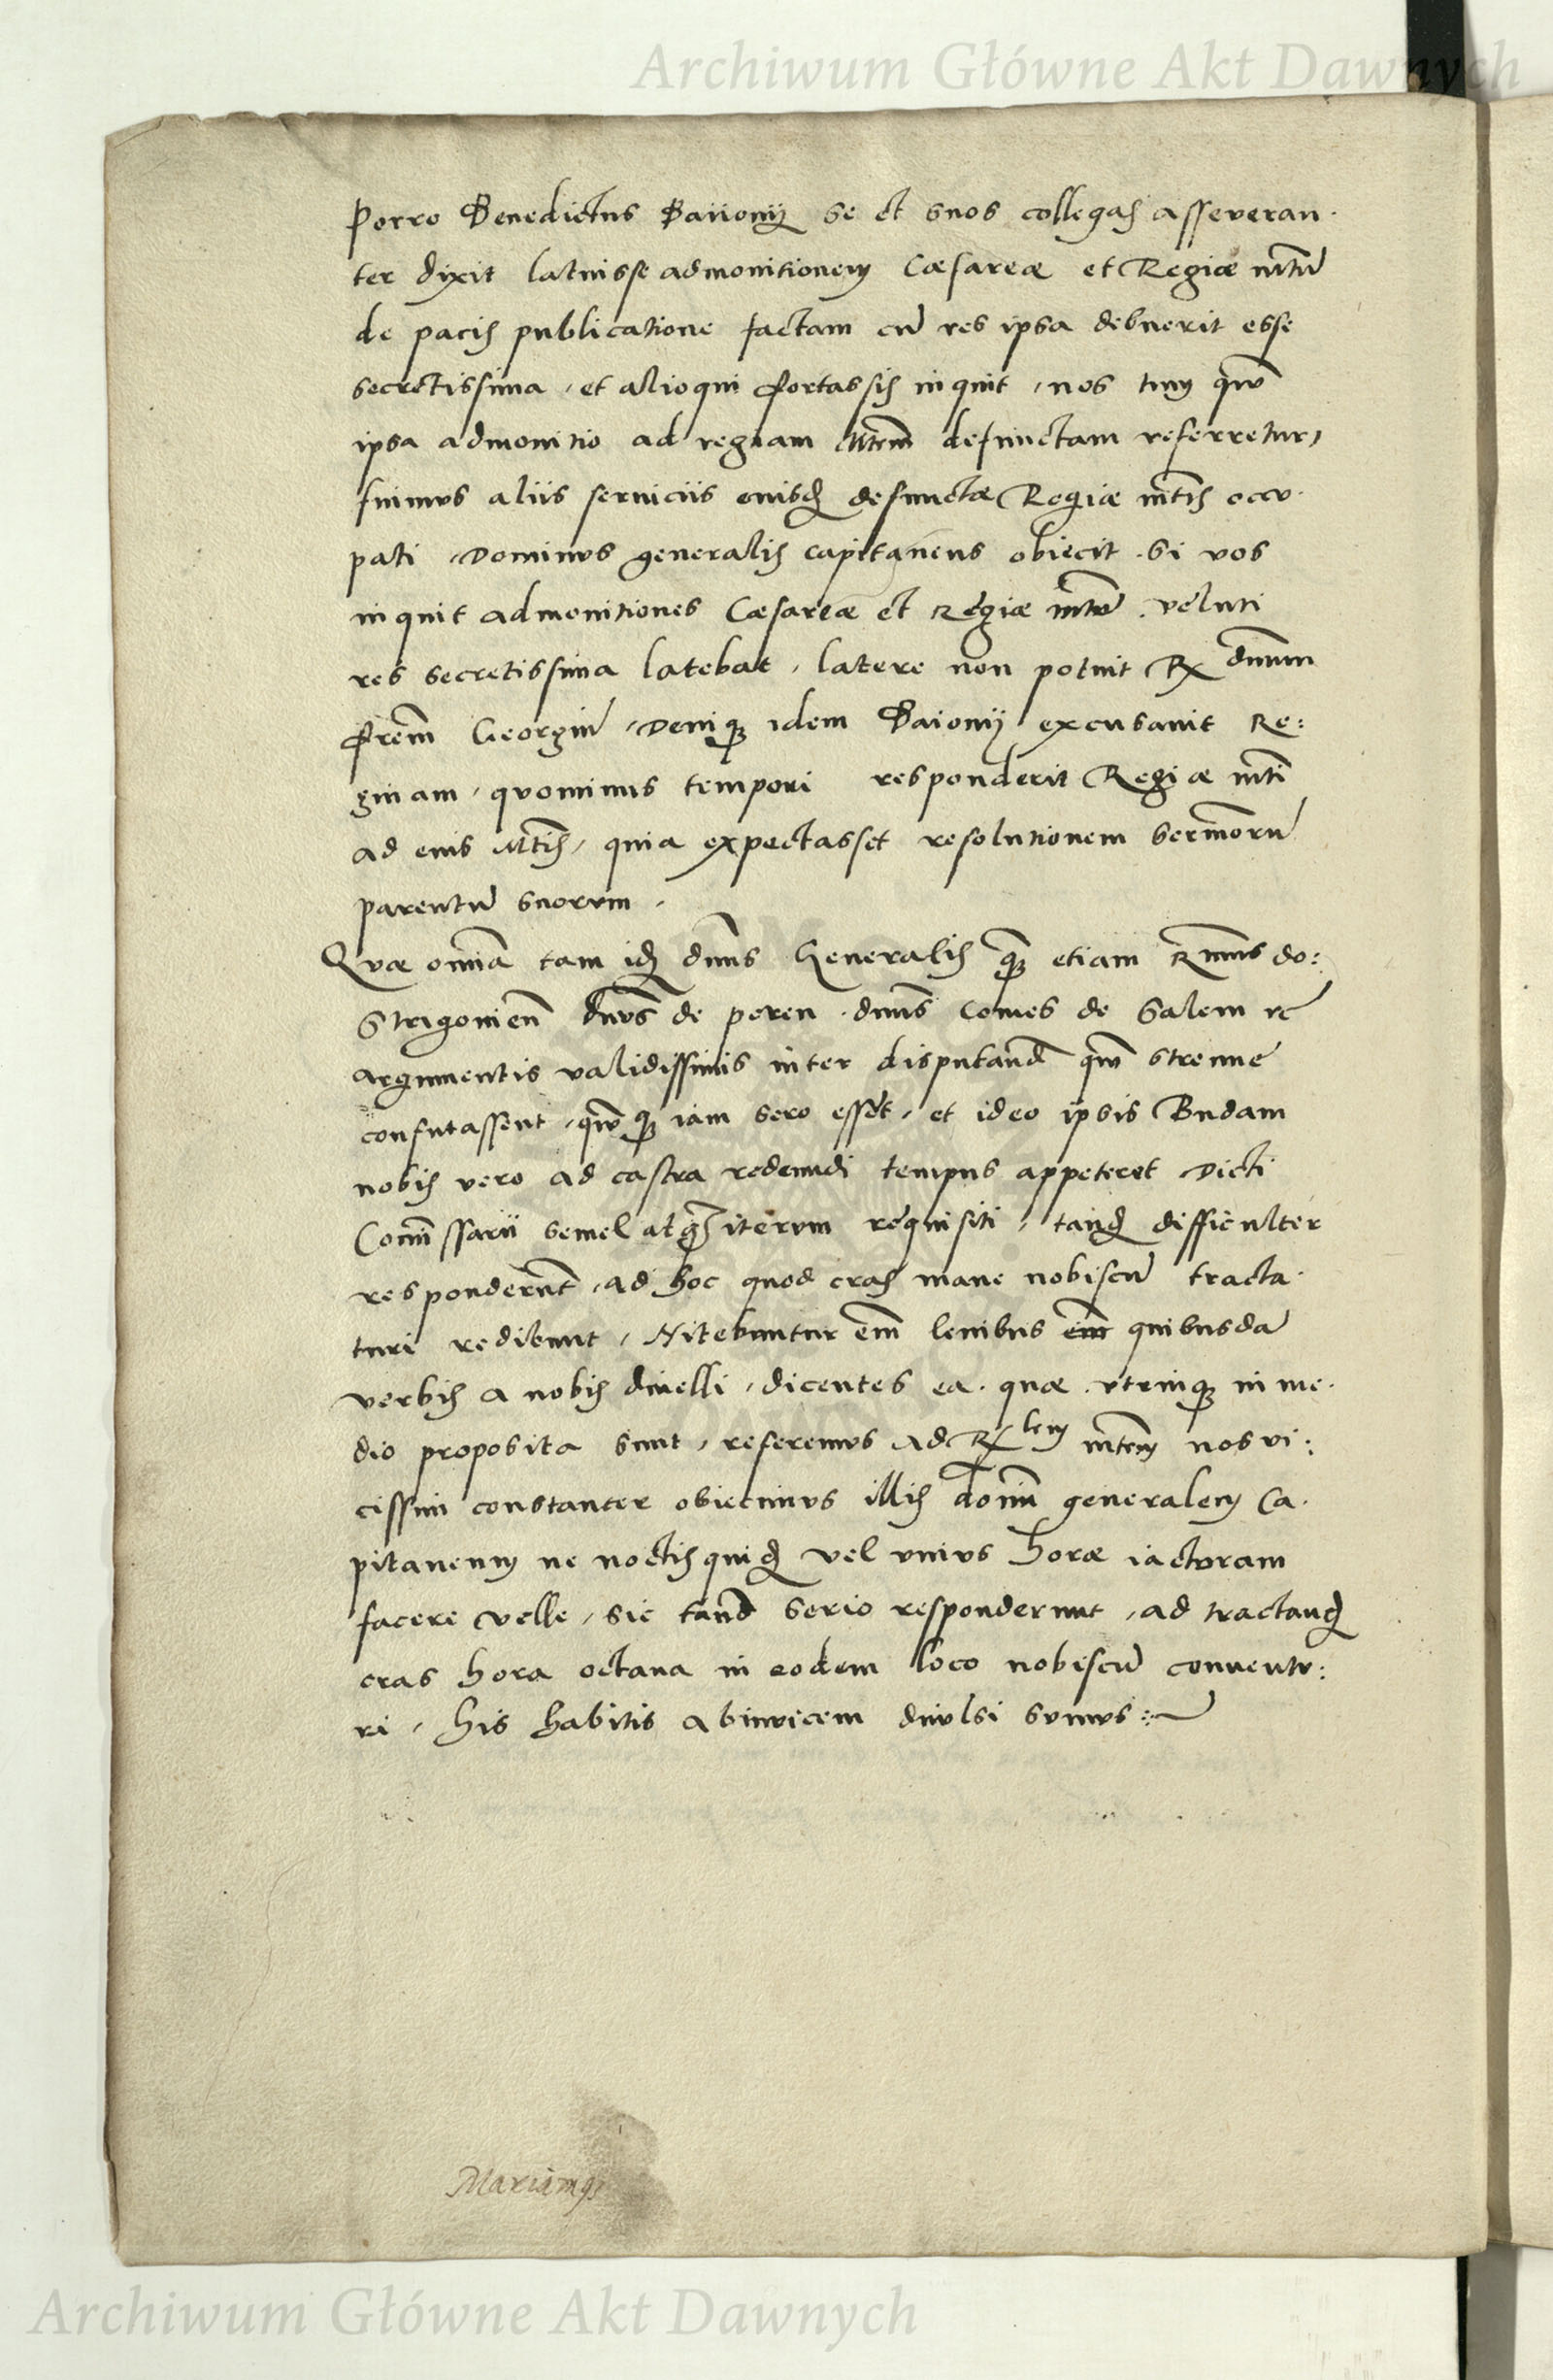 Archiwum Główne Akt Dawnych
Porro Benedictus Baiionij se et suos collegas asseveran.
ter dixit latuisse admonitionem Cæsareæ et Regiæ mtum
de pacis publicatione factam cū res ipsa debuerit esse
secretissima, et alioqui fortassis inquit, nos tum qn̄
ipsa admonitio ad regiam Mtem̄ defunctam referretur,
fuimus aliis serviciis eiusd defunctæ Regiæ mtis occu.
pati. Dominus generalis capitaneus obiecit. Si vos
inquit admonitiones Cæsareæ et Regiæ mtū. veluti
res secretissima latebat, latere non potuit Rx dnum
frem̄ Georgiū, Deniq idem Baionij excusavit Re:
ginam, quominus tempori responderit Regiæ mti
ad eius Mtis, quia expectasset resolutionem sermorū
parentū suorum.
Quæ omnia tam id dnus Generalis q̄ etiam Rmus do:
Strigonien̄ dnus de peren. dnus Comes de Salem re
argumentis validissimis inter disputand qn̄ strenue
confutassent, qn̄ q iam sero esset, et ideo ipsis Budam
nobis vero ad castra redeundi tempus appeteret Dicti
Com̄issarii semel atq iterum requisiti, tand difficulter
responderunt, ad hoc quod cras mane nobiscū tracta.
turi redibunt, Nitebantur em̄ lenibus em̄ quibusdā
verbis a nobis divelli, dicentes ea. quæ. utrinq in me.
dio proposita sunt, referemus ad Rx lem mtem nos vi:
cissim constanter obiecimus illis dom̄ generalem Ca.
pitaneum ne noctis quid vel unius horæ iacturam
facere velle, sic tand serio responderunt, ad tractand
cras hora octava in eodem loco nobiscū conventu:
ri, His habitis abinvicem divulsi sumus
Archiwum Główne Akt Dawnych